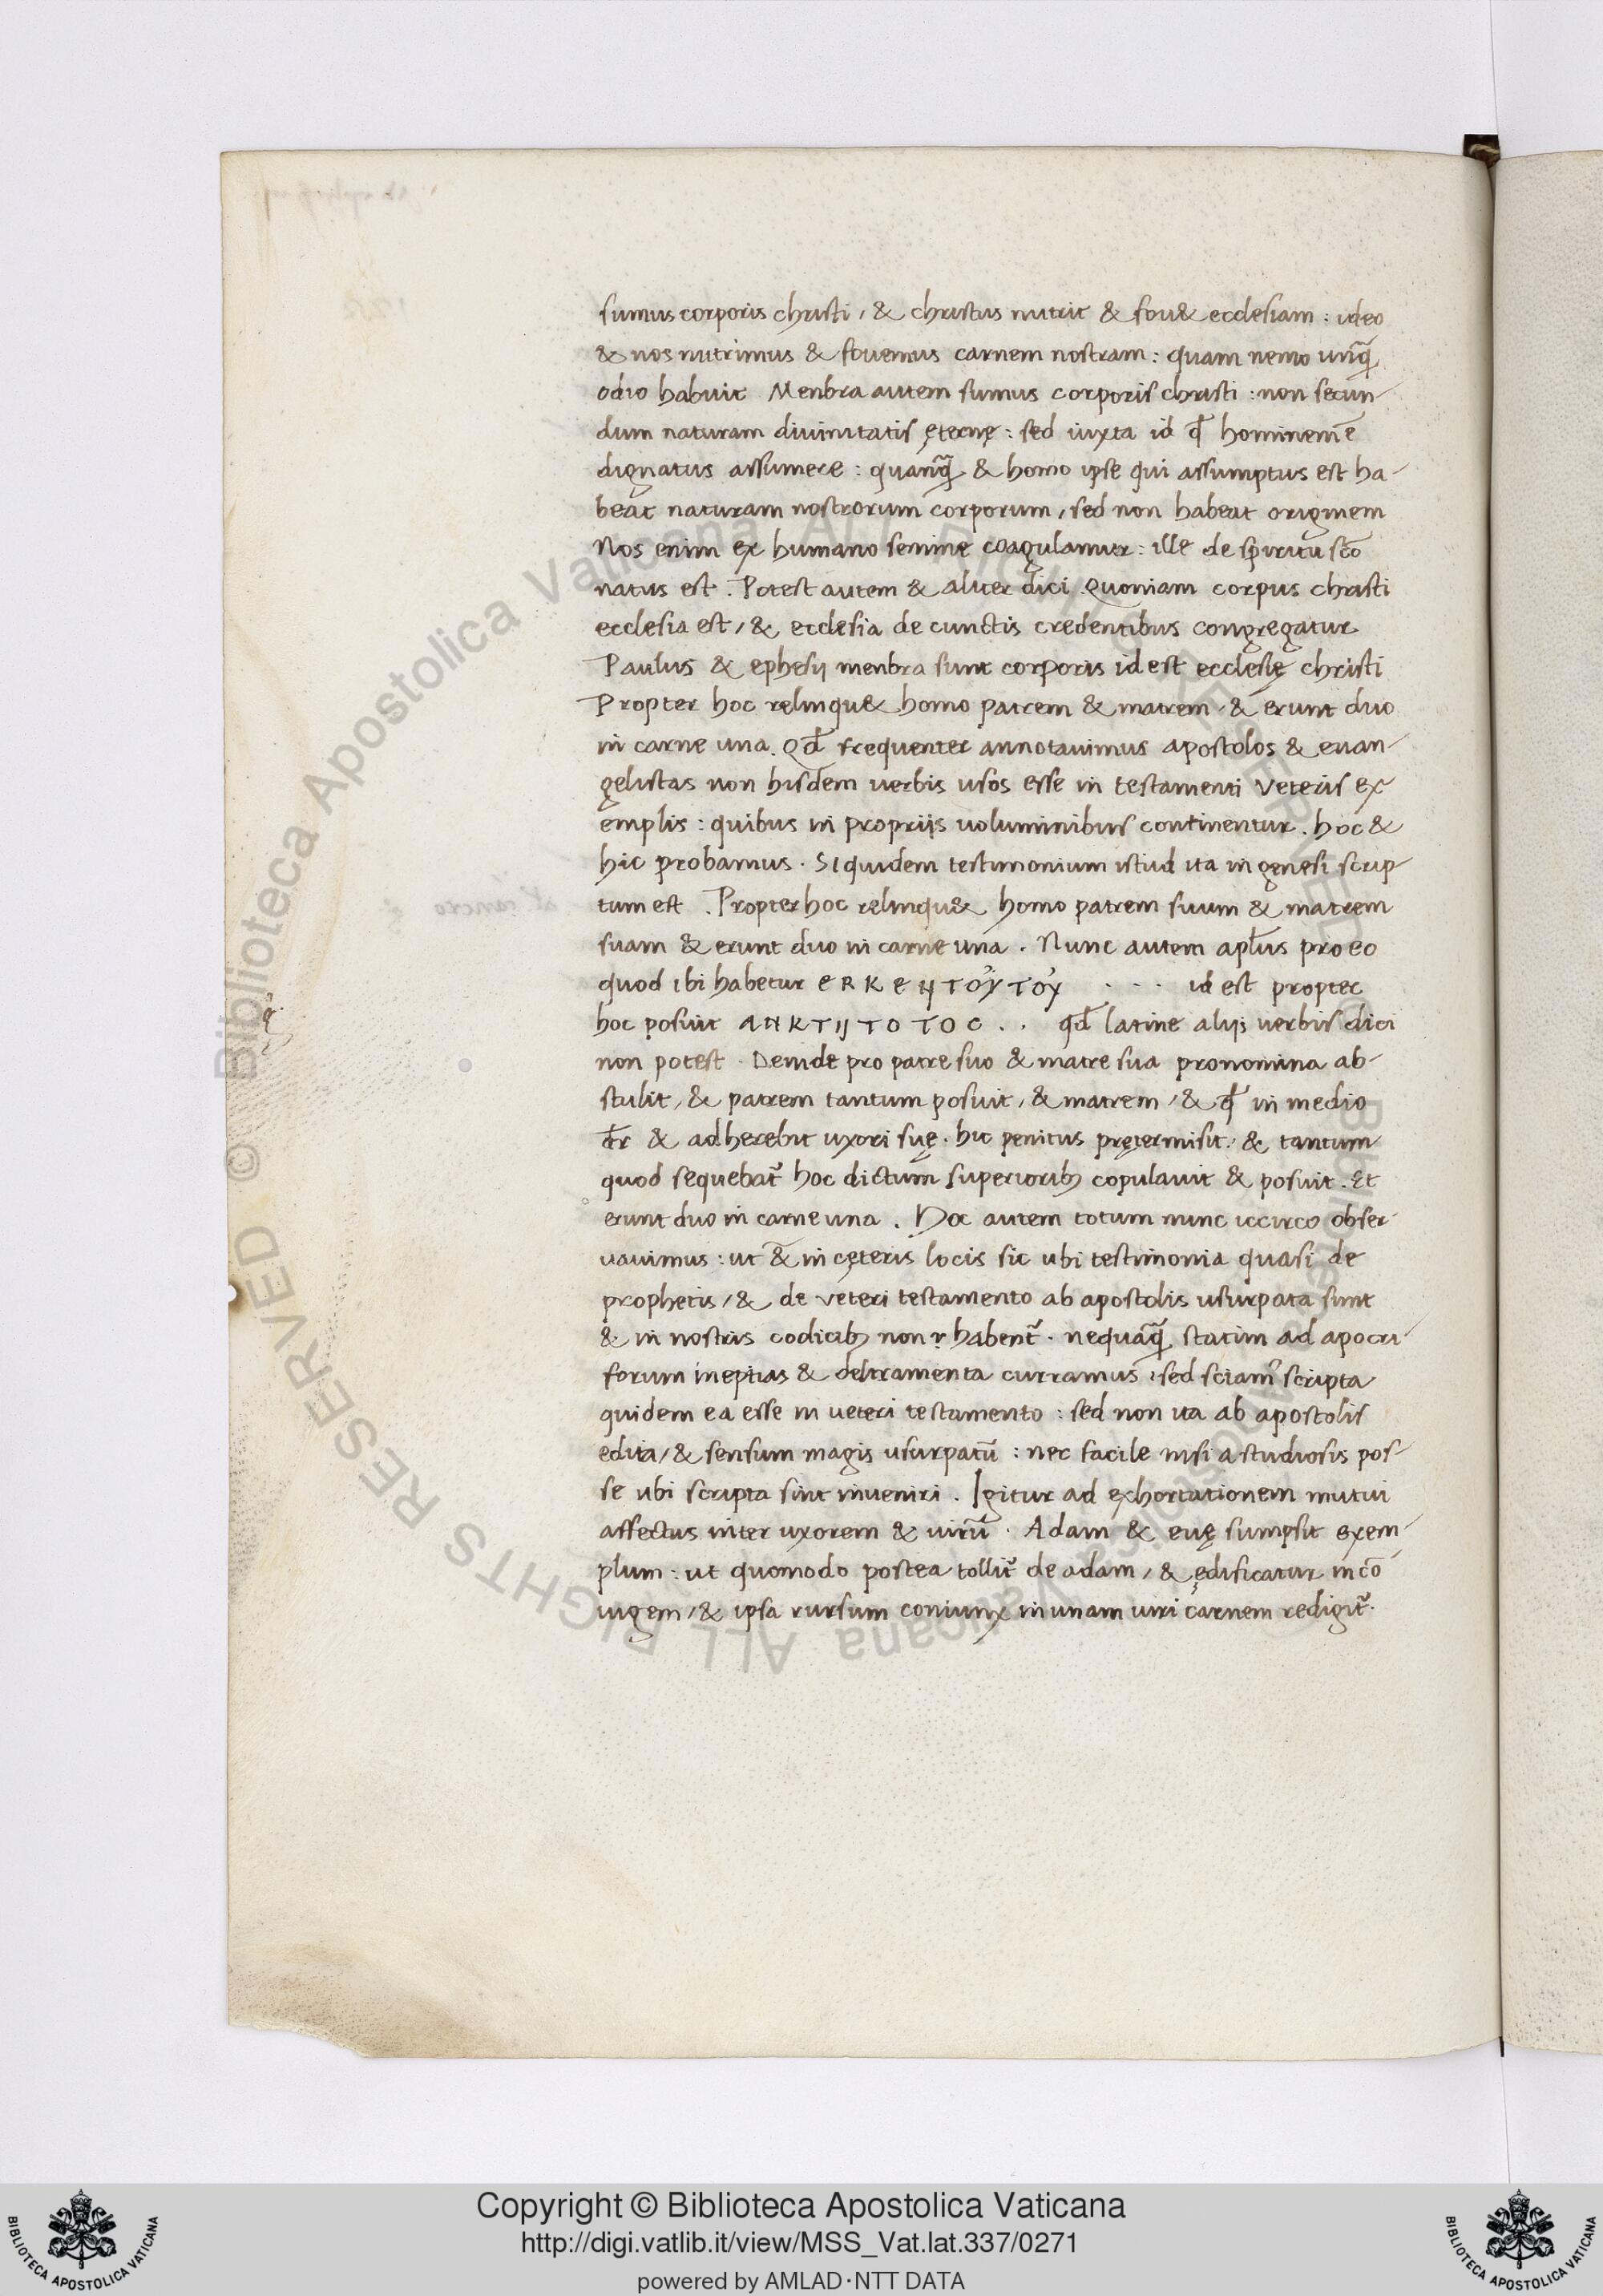 sumus corporis christi, & christus nutrit & fou& ecclesiam : ideo
& nos nutrimus & fouemus carnem nostram : quam nemo unq̃
odio habuit Menbra autem sumus corporis christi : non secun-
dum naturam diuinitatis ęternę : sed iuxta id qđ hominem ē
dignatus assumere : quanq̃ & homo ipse qui assumptus est ha-
beat naturam nostrorum corporum, sed non habeat originem
Nos enim ex humano semine coagulamur : ille de spiritu sc̄o
natus est . Potest autem & aliter dici . Quoniam corpus christi
ecclesia est, & ecclesia de cunctis credentibus congregatur
Paulus & ephesij menbra sunt corporis id est ecclesię christi
Propter hoc relinqu& homo patrem & matrem, & erunt duo
in carne una . Qđ frequenter annotauimus apostolos & euan-
gelistas non hisdem uerbis usos esse in testamenti Veteris ex-
emplis : quibus in propriis uoluminibus continentur . hoc &
hic probamus . Siquidem testimonium istud ita in genesi scrip-
tum est . Propter hoc relinqu& homo patrem suum & matrem
suam & erunt duo in carne una . Nunc autem apłus pro eo
quod ibi habetur ΕRΚΕΗΤΟΎΤΟΥ . . . id est propter
hoc posuit ΑΗΚΤΙΙΤΟΤΟC . . qđ latine alijs uerbis dici
non potest . Deinde pro patre suo & matre sua pronomina ab-
stulit, & patrem tantum posuit, & matrem, & qđ in medio
dr̄ & adherebit uxori suę . hic penitus pretermisit, & tantum
quod sequebat̃ hoc dictum superiorib; copulauit & posuit . Et
erunt duo in carne una . Hoc autem totum nunc iccirco obser-
uauimus : ut & in cęteris locis sic ubi testimonia quasi de
prophetis, & de veteri testamento ab apostolis usurpata sunt
& in nostris codicib; non habent̃ . nequaq̃ statim ad apocri-
forum ineptias & deliramenta curramus, sed sciam⁹ scripta
quidem ea esse in ueteri testamento : sed non ita ab apostolis
edita, & sensum magis usurpatū : nec facile nisi a studiosis pos-
se ubi scripta sint inueniri . Igitur ad exhortationem mutui
affectus inter uxorem & uirū . Adam & euę sumpsit exem-
plum : ut quomodo postea tollit̃ de adam, & ędificatur in cō-
iugem, & ipsa rursum coniunx in unam uiri carnem redigit̃.
Copyright © Biblioteca Apostolica Vaticana
http://digi.vatlib.it/view/MSS_Vat.lat.337/0271
powered by AMLAD·NTT DATA
BIBLIOTECA APOSTOLICA VATICANA
BIBLIOTECA APOSTOLICA VATICANA
Biblioteca Apostolica Vaticana ALL RIGHTS RESERVED ©
Biblioteca Apostolica Vaticana ALL RIGHTS RESERVED ©